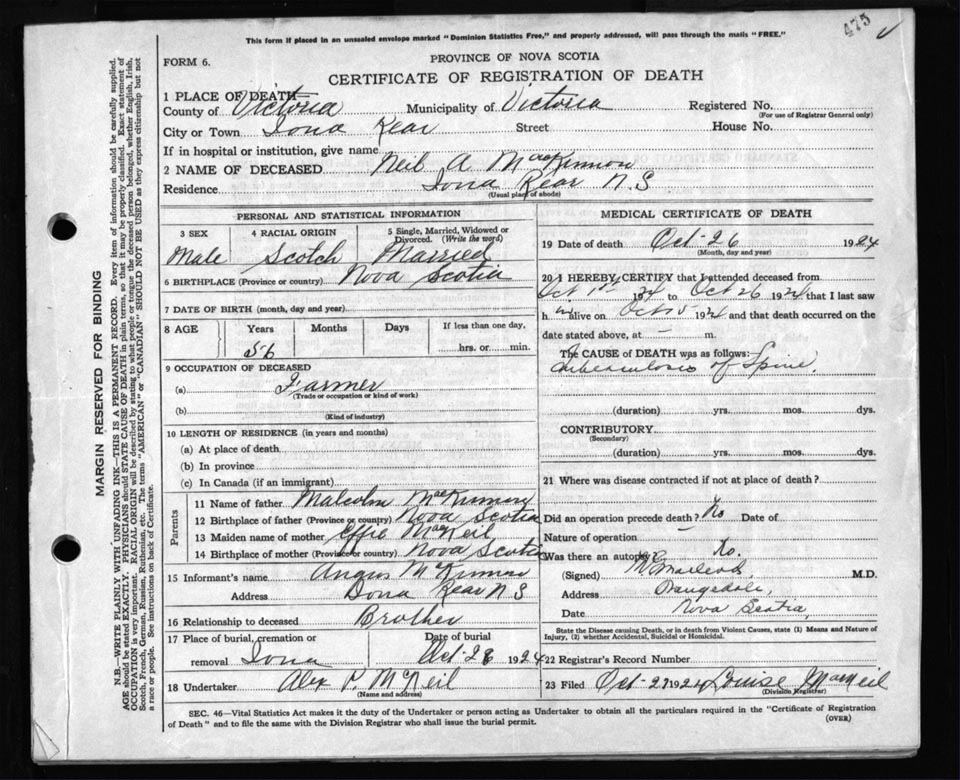 475
This form if placed in an unsealed envelope marked "Dominion Statistics Free," and properly addressed, will pass through the mails "FREE."
FORM 6.
PROVINCE OF NOVA SCOTIA
CERTIFICATE OF REGISTRATION OF DEATH
1 PLACE OF DEATH
County of Victoria Municipality of Victoria Registered No.
(For use of Registrar General only)
City or Town Iona Rear Street House No.
If in hospital or institution, give name
2 NAME OF DECEASED Neil A MacKinnon
Residence Iona Rear N.S
(Usual place of abode)
PERSONAL AND STATISTICAL INFORMATION
3 SEX 4 RACIAL ORIGIN 5 Single, Married, Widowed or Divorced. (Write the word)
Male Scotch Married
6 BIRTHPLACE (Province or country) Nova Scotia
7 DATE OF BIRTH (month, day and year)
8 AGE Years Months Days If less than one day,
56 hrs. or min.
9 OCCUPATION OF DECEASED
(a) Farmer
(Trade or occupation or kind of work)
(b)
(Kind of industry)
10 LENGTH OF RESIDENCE (in years and months)
(a) At place of death
(b) In province
(c) In Canada (if an immigrant)
Parents
11 Name of father Malcolm MacKinnon
12 Birthplace of father (Province or country) Nova Scotia
13 Maiden name of mother Effie MacNeil
14 Birthplace of mother (Province or country) Nova Scotia
15 Informant's name Angus McKinnon
Address Iona Rear N S
16 Relationship to deceased Brother
17 Place of burial, cremation or Date of burial
removal Iona Oct 28 1924
18 Undertaker Alex P. McNeil
(Name and address)
MEDICAL CERTIFICATE OF DEATH
19 Date of death Oct-26 1924
(Month, day and year)
20 I HEREBY CERTIFY that I attended deceased from
Oct 1st 1924 to Oct 26 1924 that I last saw
h alive on Oct 15 1924 and that death occurred on the
date stated above, at — m.
The CAUSE of DEATH was as follows:
Tuberculosis of Spine.
(duration) yrs. mos. dys.
CONTRIBUTORY
(Secondary)
(duration) yrs. mos. dys.
21 Where was disease contracted if not at place of death?
Did an operation precede death? No Date of
Nature of operation —
Was there an autopsy? No.
(Signed) MacLeod, M.D.
Address
Nova Scotia
Date
State the Disease causing Death, or in death from Violent Causes, state (1) Means and Nature of
Injury, (2) whether Accidental, Suicidal or Homicidal.
22 Registrar's Record Number
23 Filed Oct-27 1924 Louise MacNeil
(Division Registrar)
SEC. 46—Vital Statistics Act makes it duty of the Undertaker or person acting as Undertaker to obtain all the particulars required in the "Certificate of Registration
of Death" and to file the same with the Division Registrar who shall issue the burial permit.
(OVER)
MARGIN RESERVED FOR BINDING
N.B.—WRITE PLAINLY WITH UNFADING INK—THIS IS A PERMANENT RECORD. Every item of information should be carefully supplied.
AGE should be stated EXACTLY. PHYSICIANS should STATE CAUSE OF DEATH in plain terms, so that it may be properly classified. Exact statement of
OCCUPATION is very important. RACIAL ORIGIN will be described by stating to what people or tongue the deceased person belonged, whether English, Irish,
Scotch, French, German, Russian, Ruthenian, etc. The terms "AMERICAN" or "CANADIAN" SHOULD NOT BE USED as they express citizenship but not
a race or people. See instructions on back of Certificate.